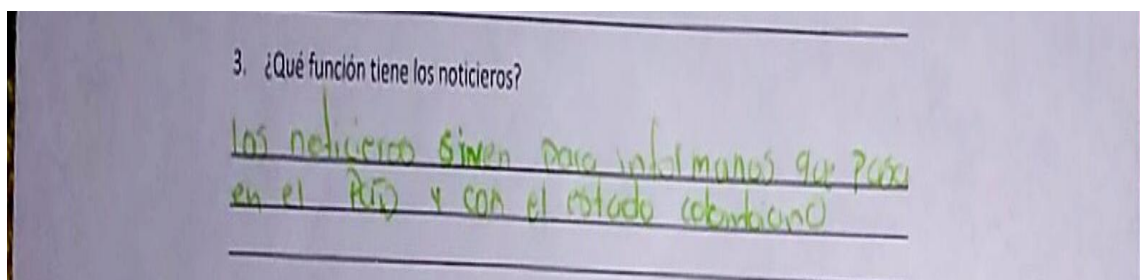 3. ¿Qué función tiene los noticieros?
los noticieros sirven para informanos que pasa
en el País y con el estado colombiano